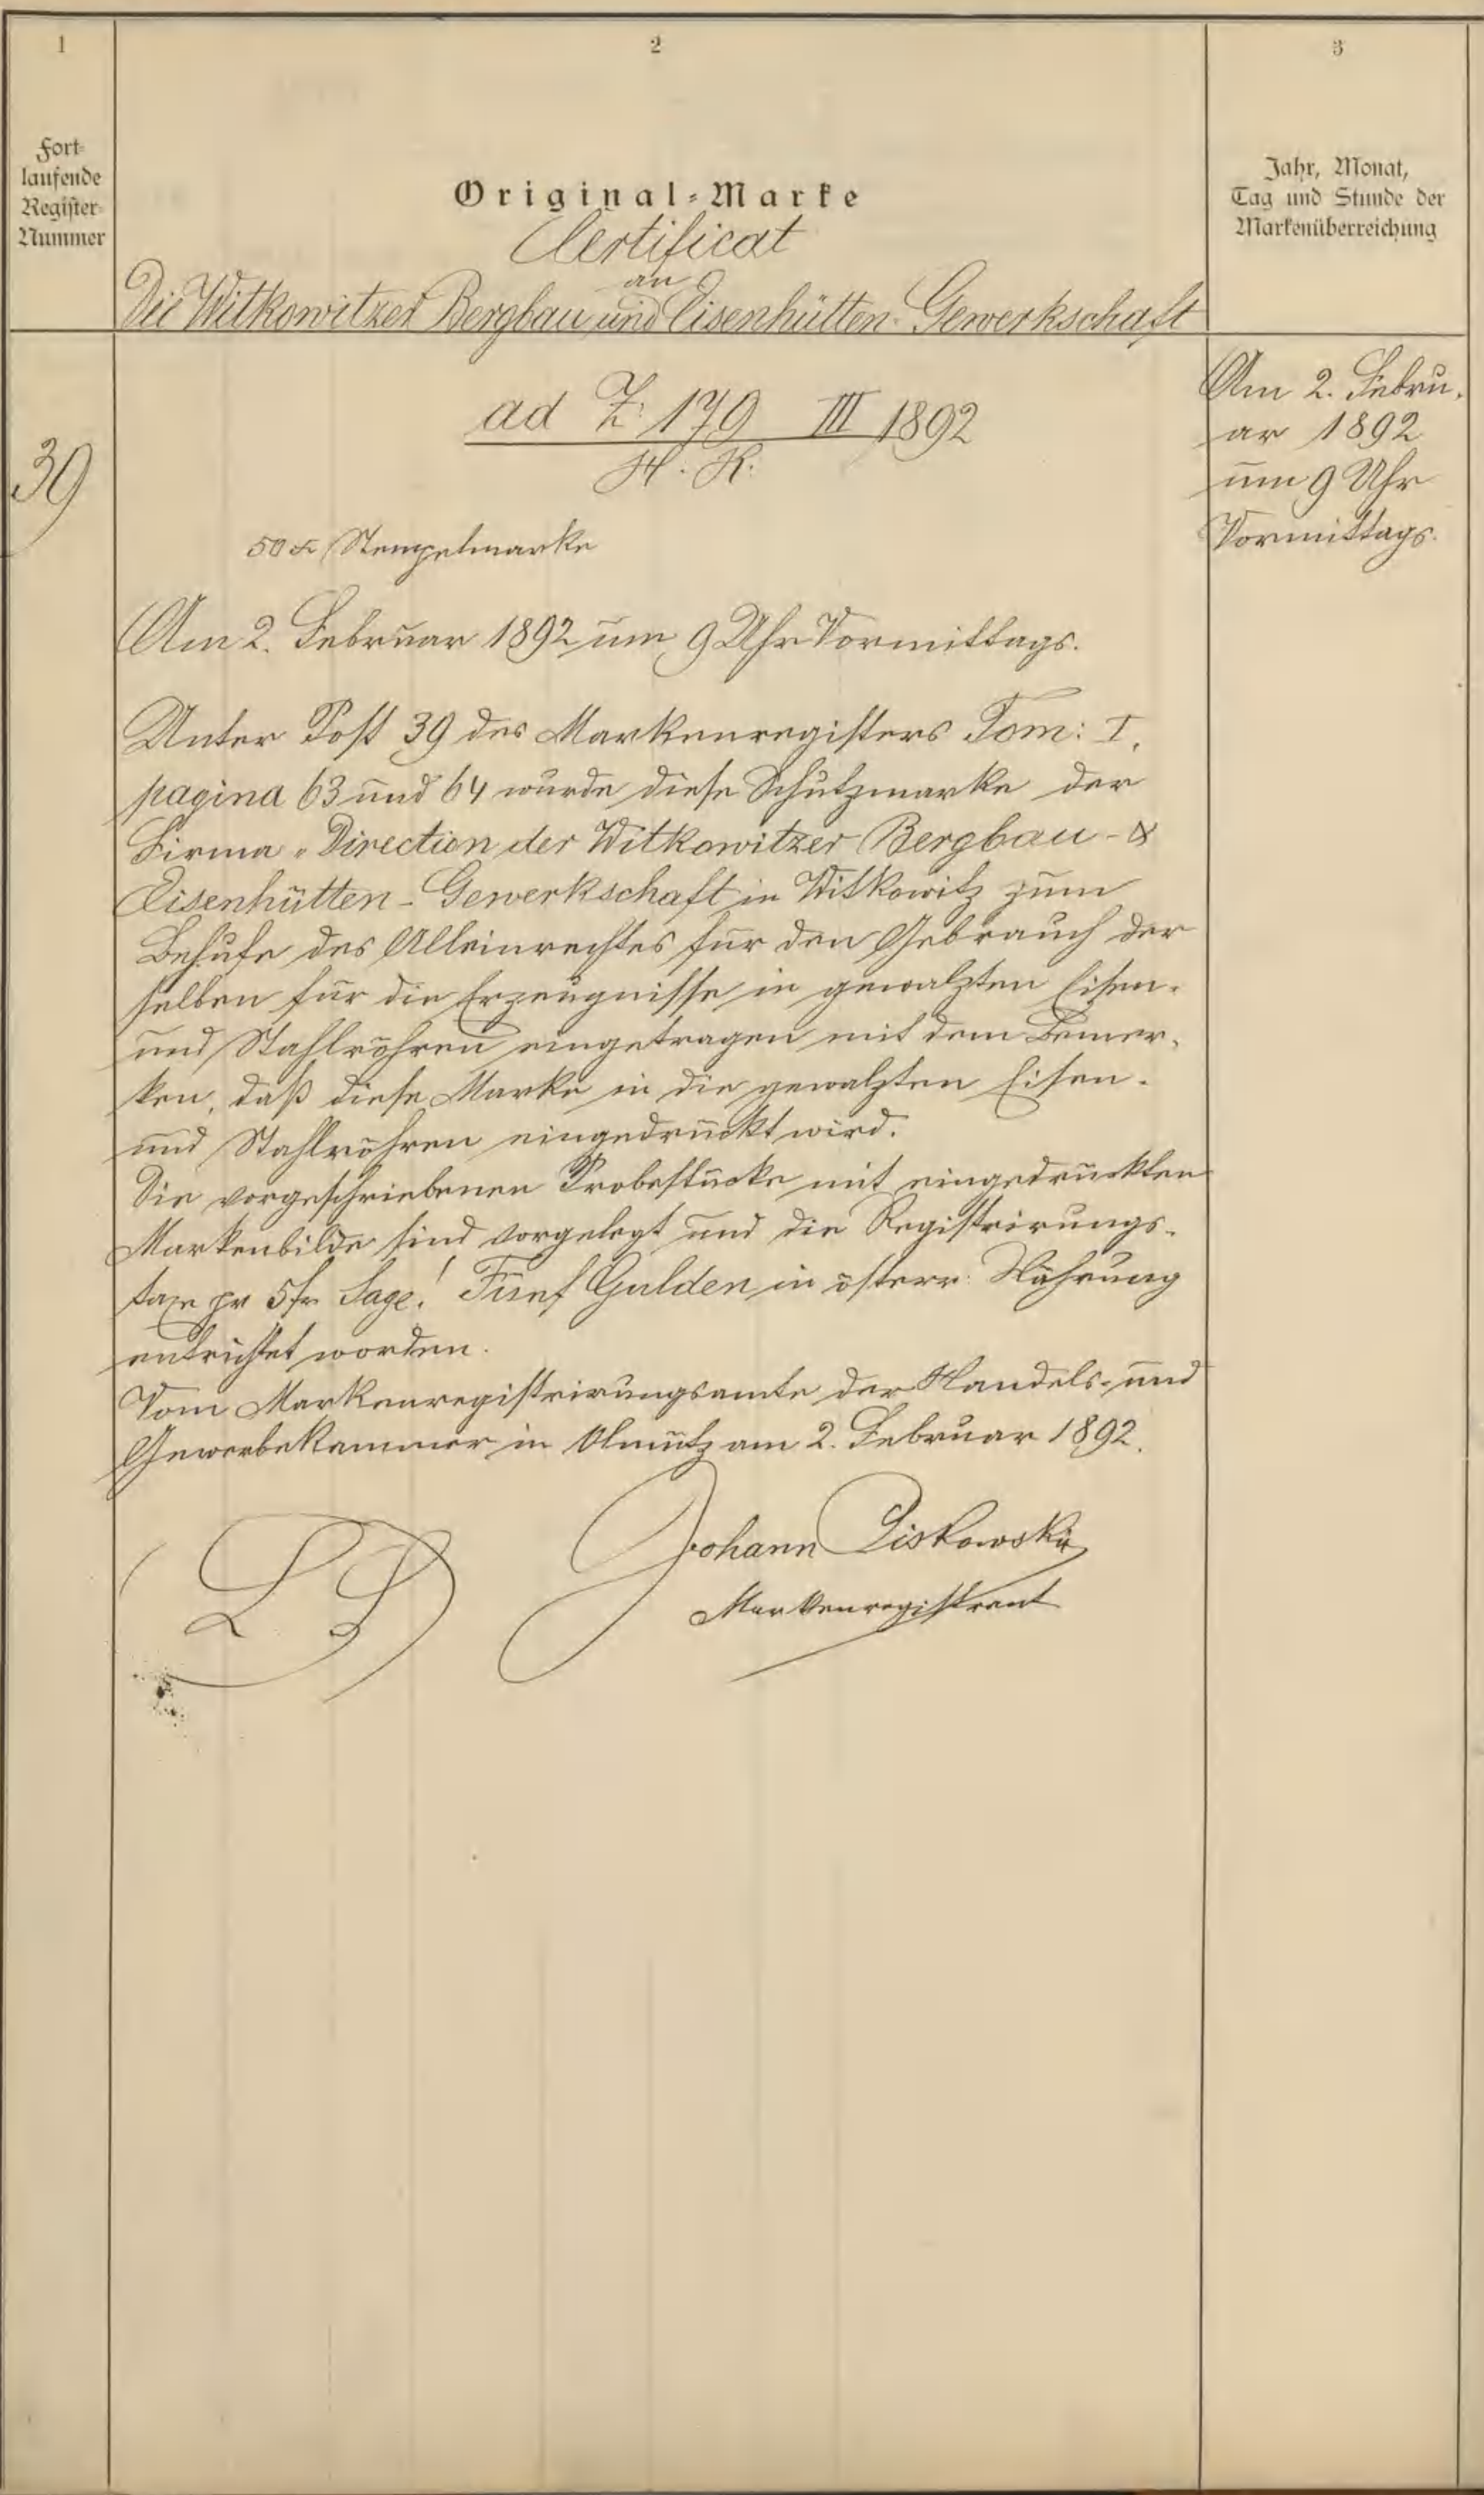 1
2
3
Fort-
laufende
Register-
Nummer
Original-Marke
Jahr, Monat,
Tag und Stunde der
Markenüberreichung
Certificat
an
Die Witkowitzer Bergbau und Eisenhütten-Gewerkschaft
39
ad Z: 179 III 1892
H. K.
Am 2. Febru-
ar 1892
um 9 Uhr
Vormittags.
50 x Stempelmarke
Am 2. Februar 1892 um 9 Uhr Vormittags.
Unter Post 39 des Markenregisters Tom: I,
pagina 63 und 64 wurde diese Schutzmarke der
Firma „Direction der Witkowitzer Bergbau- &
Eisenhütten-Gewerkschaft in Witkowitz zum
Behufe des Alleinrechtes für den Gebrauch der
selben für die Erzeugnisse in gewalzten Eisen-
und Stahlröhren eingetragen mit dem Bemer-
ken, daß diese Marke in die gewalzten Eisen-
und Stahlröhren eingedruckt wird.
Die vorgeschriebenen Probestücke mit eingedruckten
Markenbilde sind vorgelegt und die Registrirungs-
taxe pr 5 fr Sage! Fünf Gulden in österr. Währung
entrichtet worden.
Vom Markenregistrirungsamte der Handels- und
Gewerbekammer in Olmütz am 2. Februar 1892.
LS
Johann Piskowski
Markenregistrant